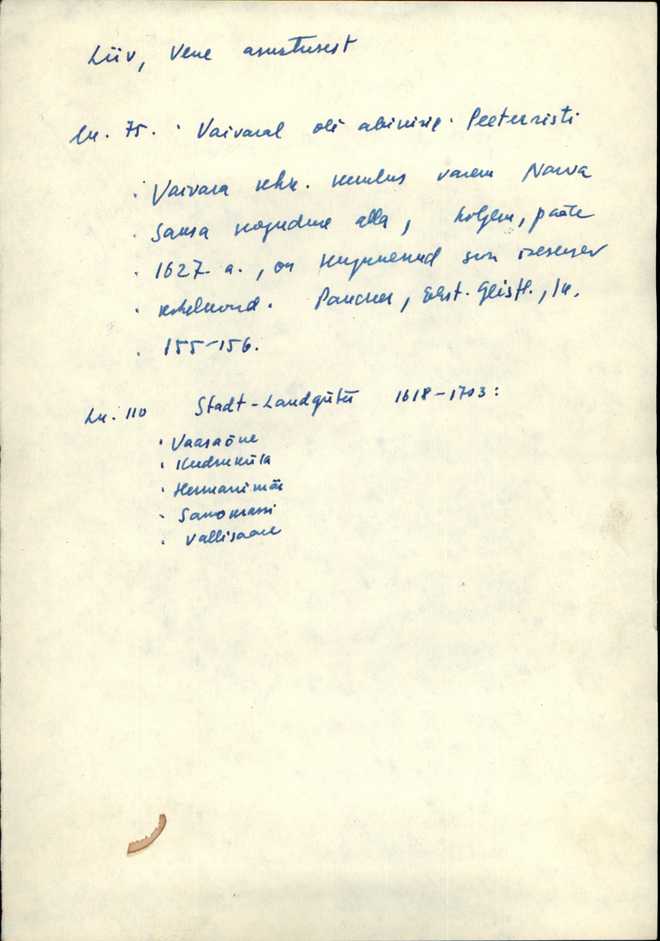 Liiv, Vene asustusest
Lk. 75. · Vaivaral oli abikirik · Peeterristi
· Vaivara khk. kuulus varem Narva
· Saksa koguduse alla, hiljem, pääle
· 1627. a., on kujunenud siin iseseisev
· kihelkond. Paucker, Ehst. Geistl., lk.
· 155-156.
Lk. 110 Stadt-Landgüter 1618-1703:
· Vaasaõue
· Kudruküla
· Hermanimäe
· Samokrassi
· Vallisaare